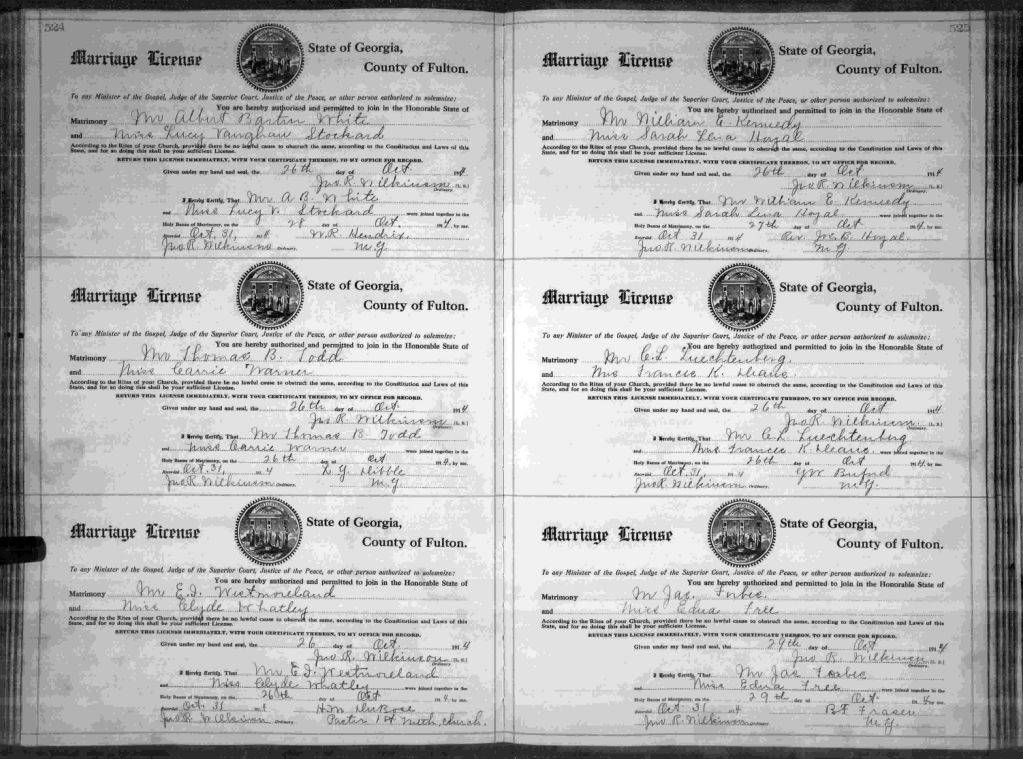 524
Marriage License
State of Georgia,
County of Fulton.
To any Minister of the Gospel, Judge of the Superior Court, Justice of the Peace, or other person authorized to solemnize:
You are hereby authorized and permitted to join in the Honorable State of
Matrimony Mr Albert Bartin White
and Miss Lucy Vaughan Stockard
According to the Rites of your Church, provided there be no lawful cause to obstruct the same, according to the Constitution and Laws of this
State, and for so doing this shall be your sufficient License.
RETURN THIS LICENSE IMMEDIATELY, WITH YOUR CERTIFICATE THEREON, TO MY OFFICE FOR RECORD.
Given under my hand and seal, the 26th day of Oct 1914
Jno R. Wilkinson (L. S.)
Ordinary.
I Hereby Certify, That Mr A B. White
and Miss Lucy V. Stockard were joined together in the
Holy Banns of Matrimony, on the 28 day of Oct 1914, by me.
Recorded Oct 31, 1914 W.R. Hendrix
Jno R. Wilkinson Ordinary. M.G.
Marriage License
State of Georgia,
County of Fulton.
To any Minister of the Gospel, Judge of the Superior Court, Justice of the Peace, or other person authorized to solemnize:
You are hereby authorized and permitted to join in the Honorable State of
Matrimony Mr Thomas B. Todd
and Miss Carrie Warner
According to the Rites of your Church, provided there be no lawful cause to obstruct the same, according to the Constitution and Laws of this
State, and for so doing this shall be your sufficient License.
RETURN THIS LICENSE IMMEDIATELY, WITH YOUR CERTIFICATE THEREON, TO MY OFFICE FOR RECORD.
Given under my hand and seal, the 26th day of Oct. 1914
Jno R. Wilkinson (L. S.)
Ordinary.
I Hereby Certify, That Mr Thomas B. Todd
and Miss Carrie Warner were joined together in the
Holy Banns of Matrimony, on the 26th day of Oct 1914, by me.
Recorded Oct 31, 1914 Dibble
Jno R. Wilkinson Ordinary. M.G.
Marriage License
State of Georgia,
County of Fulton.
To any Minister of the Gospel, Judge of the Superior Court, Justice of the Peace, or other person authorized to solemnize:
You are hereby authorized and permitted to join in the Honorable State of
Matrimony Mr E.J. Westmoreland
and Miss Clyde Whatley
According to the Rites of your Church, provided there be no lawful cause to obstruct the same, according to the Constitution and Laws of this
State, and for so doing this shall be your sufficient License.
RETURN THIS LICENSE IMMEDIATELY, WITH YOUR CERTIFICATE THEREON, TO MY OFFICE FOR RECORD.
Given under my hand and seal, the 26 day of Oct 1914
Jno R. Wilkinson (L. S.)
Ordinary.
I Hereby Certify, That Mr E.J. Westmoreland
and Miss Clyde Whatley were joined together in the
Holy Banns of Matrimony, on the 26th day of Oct 1914, by me.
Recorded Oct. 31 1914 H.M. DuBose
Jno R Wilkinson Ordinary. Pastor 1st Meth. church.
525
Marriage License
State of Georgia,
County of Fulton.
To any Minister of the Gospel, Judge of the Superior Court, Justice of the Peace, or other person authorized to solemnize:
You are hereby authorized and permitted to join in the Honorable State of
Matrimony Mr William E. Kennedy
and Miss Sarah Lena Hozal
According to the Rites of your Church, provided there be no lawful cause to obstruct the same, according to the Constitution and Laws of this
State, and for so doing this shall be your sufficient License.
RETURN THIS LICENSE IMMEDIATELY, WITH YOUR CERTIFICATE THEREON, TO MY OFFICE FOR RECORD.
Given under my hand and seal, the 26th day of Oct 1914
Jno R. Wilkinson (L. S.)
Ordinary.
I Hereby Certify, That Mr William E. Kennedy
and Miss Sarah Lena Hozal were joined together in the
Holy Banns of Matrimony, on the 27th day of Oct 1914, by me.
Recorded Oct 31 1914 Rev. Hozal.
Jno R. Wilkinson Ordinary. M.G.
Marriage License
State of Georgia,
County of Fulton.
To any Minister of the Gospel, Judge of the Superior Court, Justice of the Peace, or other person authorized to solemnize:
You are hereby authorized and permitted to join in the Honorable State of
Matrimony Mr. C.L. Luechtenberg.
and Mrs Francee K. Deane.
According to the Rites of your Church, provided there be no lawful cause to obstruct the same, according to the Constitution and Laws of this
State, and for so doing this shall be your sufficient License.
RETURN THIS LICENSE IMMEDIATELY, WITH YOUR CERTIFICATE THEREON, TO MY OFFICE FOR RECORD.
Given under my hand and seal, the 26th day of Oct 1914
Jno R. Wilkinson (L. S.)
Ordinary.
I Hereby Certify, That Mr C.L. Luechtenberg
and Mrs Francee K. Deane. were joined together in the
Holy Banns of Matrimony, on the 26th day of Oct 1914, by me.
Recorded Oct 31, 1914 Buford
Jno R. Wilkinson Ordinary. M.G.
Marriage License
State of Georgia,
County of Fulton.
To any Minister of the Gospel, Judge of the Superior Court, Justice of the Peace, or other person authorized to solemnize:
You are hereby authorized and permitted to join in the Honorable State of
Matrimony Mr Jas. Forbis.
and Miss Edna Free
According to the Rites of your Church, provided there be no lawful cause to obstruct the same, according to the Constitution and Laws of this
State, and for so doing this shall be your sufficient License.
RETURN THIS LICENSE IMMEDIATELY, WITH YOUR CERTIFICATE THEREON, TO MY OFFICE FOR RECORD.
Given under my hand and seal, the 29th day of Oct 1914
Jno R. Wilkinson (L. S.)
Ordinary.
I Hereby Certify, That Mr Jas Forbis
and Miss Edna Free were joined together in the
Holy Banns of Matrimony, on the 29th day of Oct 1914, by me.
Recorded Oct 31 1914 B.F. Fraser
Jno R. Wilkinson Ordinary. M.G.